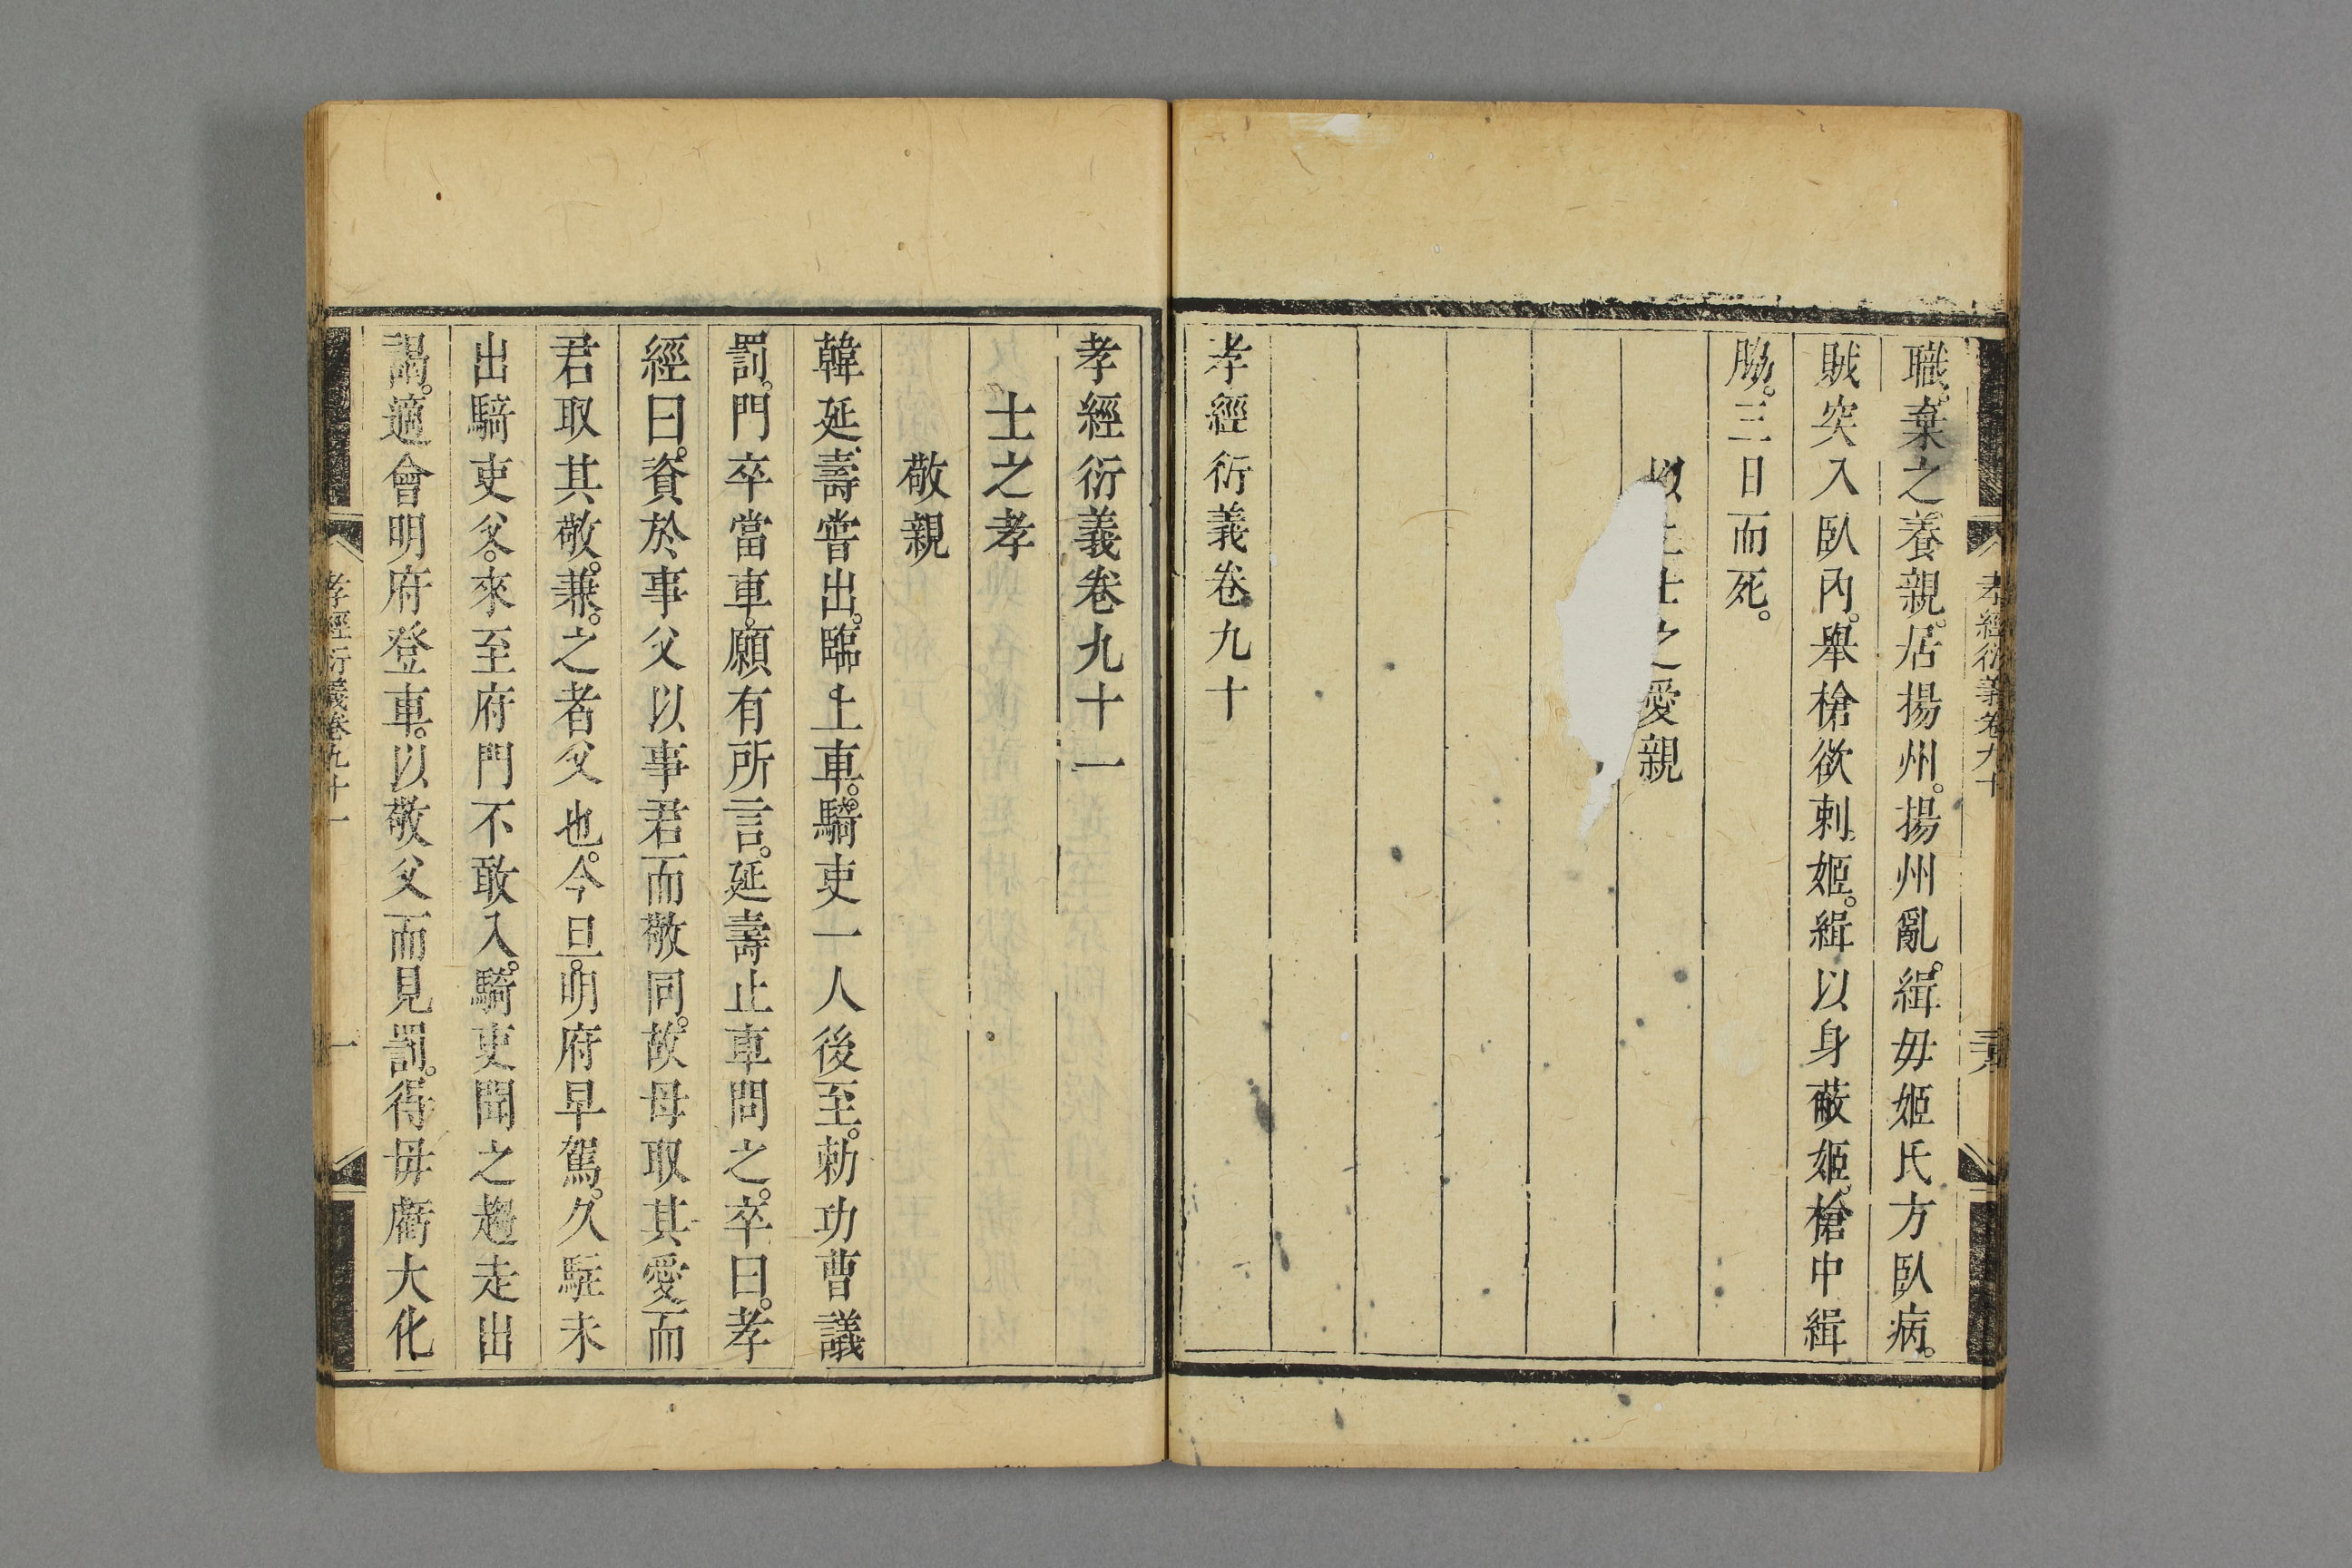 孝經衍義卷九十
職。棄之養親。居揚州。揚州亂。緝毋姬氏方臥病。
賊突入臥內。舉槍欲刺姬。緝以身蔽姬。槍中緝
脇。三日而死。
以上士之愛親
孝經衍義卷九十
孝經衍義卷九十一
士之孝
敬親
韓延壽嘗出。臨上車。騎吏一人後至。勅功曹議
罰。門卒當車。願有所言。延壽止車問之。卒曰。孝
經曰。資於事父以事君而敬同。故母取其愛。而
君取其敬。兼之者父也。今旦。明府早駕。久駐未
出。騎吏父。來至府門不敢入。騎吏聞之趨走出
謁。適會明府登車。以敬父而見罰。得毋虧大化
孝經衍義卷九十一
一